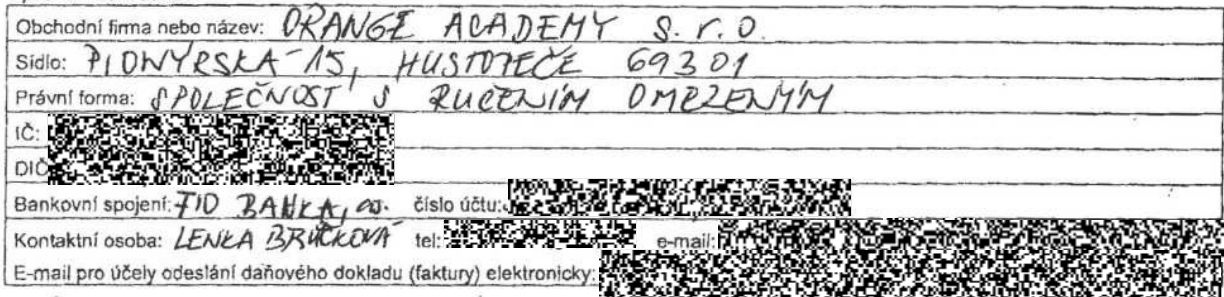 Obchodní firma nebo název: ORANGE ACADEMY s.r.o.
Sídlo: PIONÝRSKÁ 15, HUSTOPEČE 69301
Právní forma: SPOLEČNOST S RUČENÍM OMEZENÝM
IČ:
DIČ
Bankovní spojení: FIO BANKA, a.s. číslo účtu:
Kontaktní osoba: LENKA BRŮČKOVÁ tel: e-mail:
E-mail pro účely odeslání daňového dokladu (faktury) elektronicky: